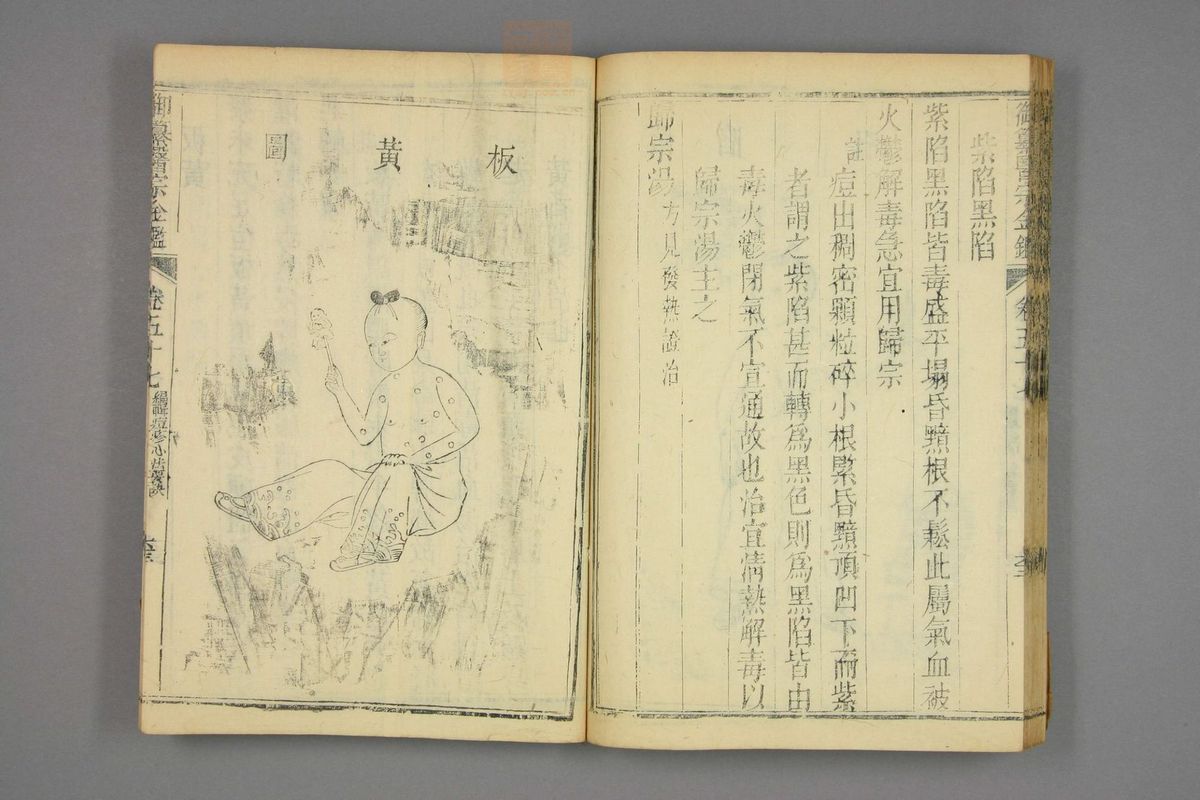 御纂醫宗金鑑 卷五十七
紫陷黑陷
紫陷黑陷皆毒盛平塌昏黯根不鬆此屬氣血被
火鬱解毒急宜用歸宗
註
痘出稠密顆粒碎小根緊昏黯頂凹下而紫
者謂之紫陷甚而轉爲黑色則爲黑陷皆由
毒火鬱閉氣不宣通故也治宜清熱解毒以
歸宗湯主之
歸宗湯 方見發熱證治
板黃圖
御纂醫宗金鑑 卷五十七 編輯痘疹心法要訣